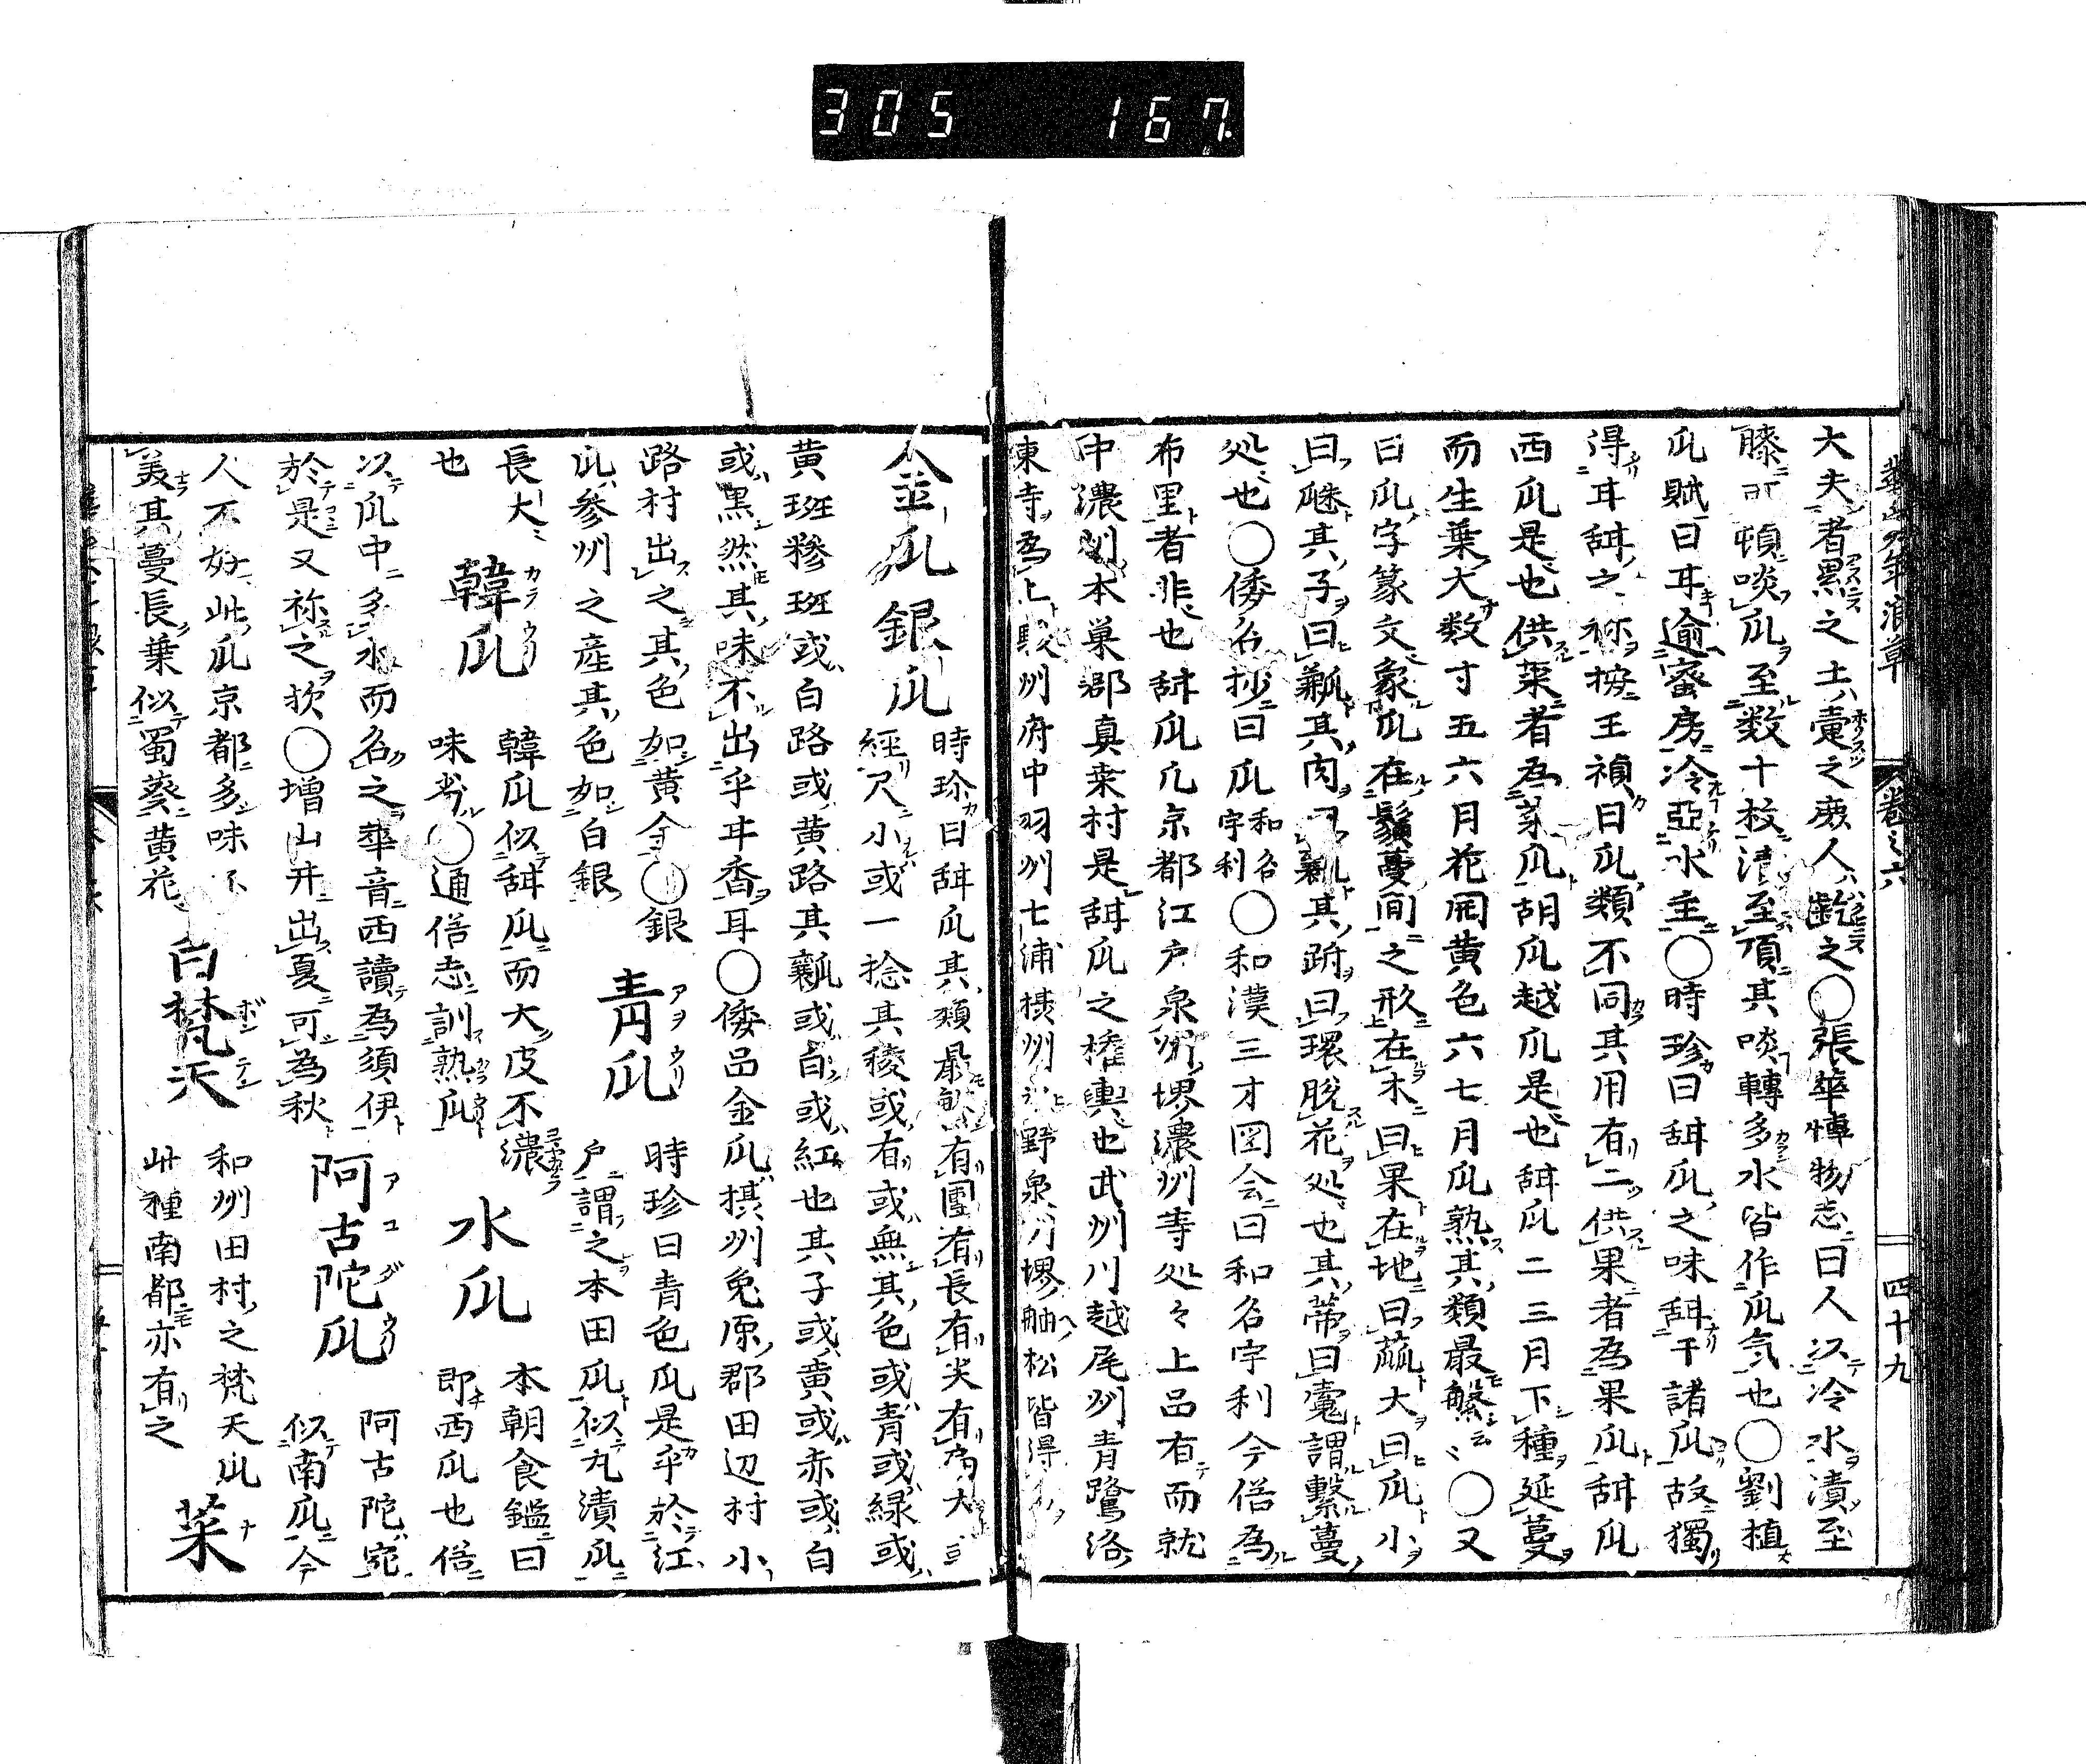 305 167
華実年浪草 巻之六 四十九
大夫者累之士疐之庶人齕之〇張華博物志曰人以冷水漬至
膝可頓啖瓜至数十枚漬至項其啖轉多水皆作瓜気也〇劉植
瓜賦曰甘逾蜜房冷亞水圭〇時珍曰甜瓜之味甜于諸瓜故獨
得甘甜之称按王禎曰瓜類不同其用有二供果者為果瓜甜瓜
西瓜是也供菜者為菜瓜胡瓜越瓜是也甜瓜二三月下種延蔓
而生葉大数寸五六月花開黄色六七月瓜熟其類最繁云〻〇又
曰瓜字篆文象瓜在鬚蔓間之形在木曰果在地曰蓏大曰瓜小
曰瓞其子曰㼓其肉曰瓤其跗曰環脱花処也其蒂曰疐謂繫蔓
処也〇倭名抄曰瓜和名宇利〇和漢三才図会曰和名宇利今俗為
布里者非也甜瓜凡京都江戸泉州堺濃州寺処々上品有而就
中濃州本巣郡真桑村是甜瓜之権輿也武州川越尾州青鷺洛
東寺為上駿州府中羽州七浦横州 野泉州堺舳松皆得
金瓜銀瓜 時珍曰甜瓜其類最繁有團有長有尖有扁大或
經尺小或一捻其稜或有或無其色或青或緑或
黄斑糝斑或白路或黄路其瓤或白或紅也其子或黄或赤或白
或黒然其味不出乎甘香耳〇倭品金瓜摂州兎原郡田辺村小
路村出之其色如黄金〇銀 青瓜アヲウリ 時珍曰青色瓜是乎於江
瓜参州之産其色如白銀 戸謂之本田瓜似丸漬瓜
長大 韓瓜カラウリ 韓瓜似甜瓜而大皮不濃 水瓜 本朝食鑑曰
也 味劣〇通俗志訓熟瓜 即西瓜也俗
以瓜中多水而名之華音西讀為須伊 阿古陀瓜アコダウリ 阿古陀宛
於是又称之欤〇増山井出夏可為秋 似南瓜今
人不好此瓜京都多味不 白梵天ボンテン 和州田村之梵天瓜 菜ナ
美其蔓長葉似蜀葵黄花 此種南都亦有之